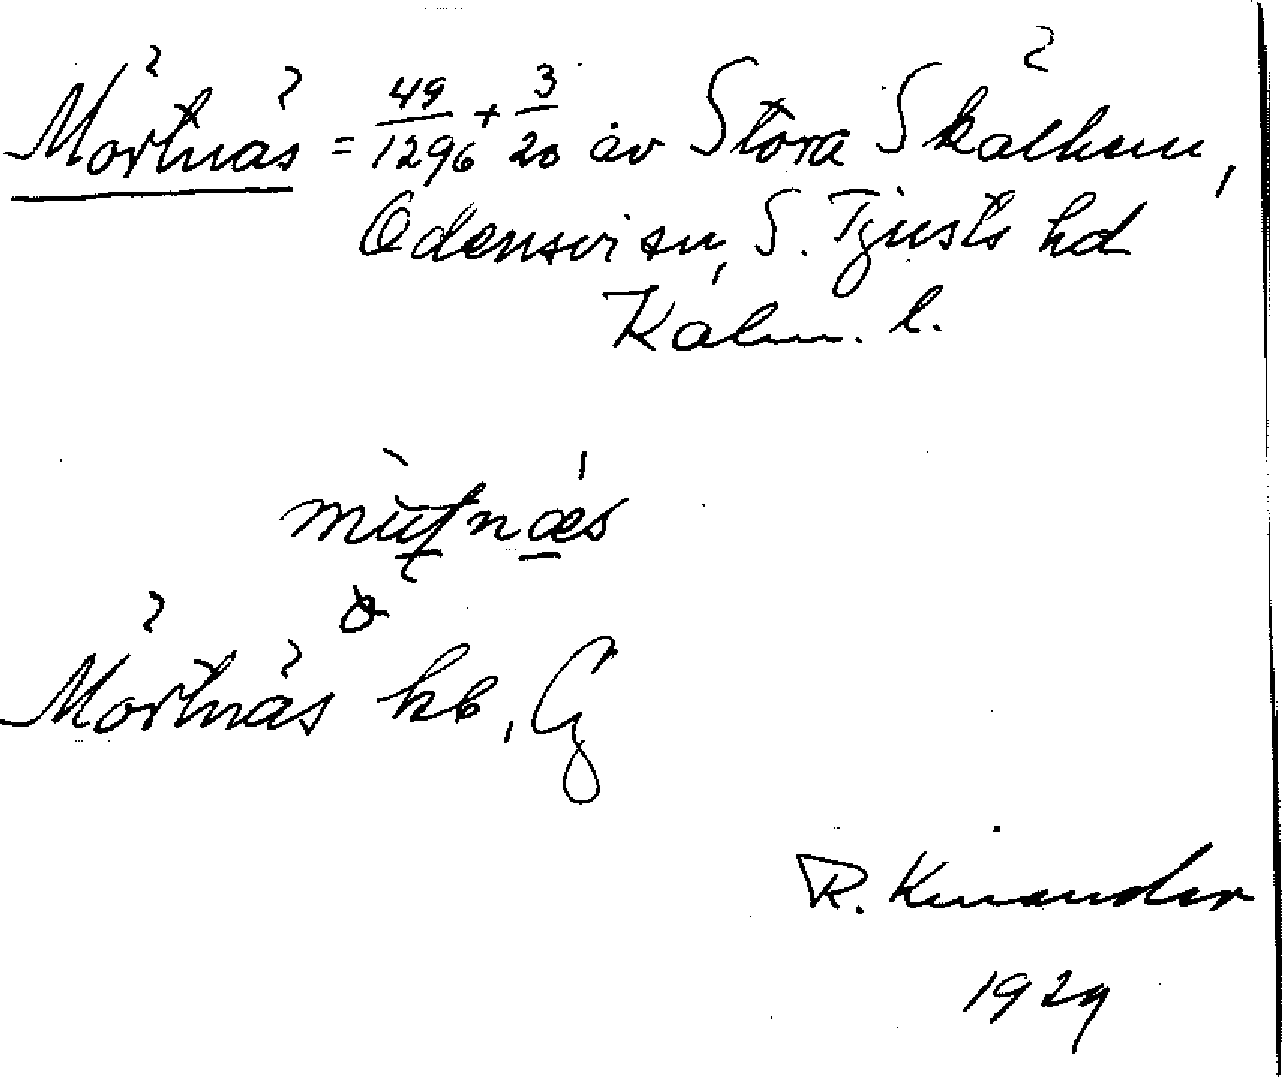 Mörtnäs = 49/1296 + 3/20 av Stora Skälhem,
Odensvi sn, S. Tjusts hd
Kalm. l.
Mörtnäs kb, Gj
R. Kinander
1929